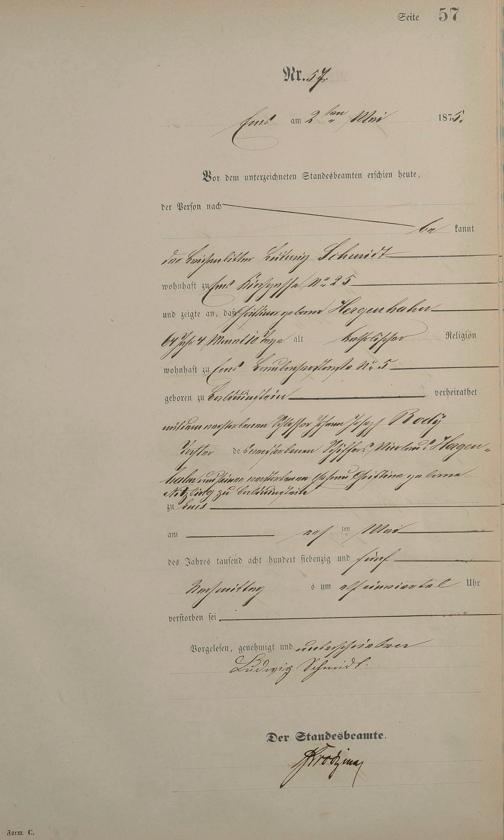 Seite 57
Nr. 57.
Ems am 2ten Mai 1875.
Vor dem unterzeichneten Standesbeamten erschien heute,
der Person nach
be kannt
der Ludwig Schmidt
wohnhaft zu Ems No 25
und zeigte an, daß geborne Hergenhahn
64 Jahr 4 Monate alt katholischer Religion
wohnhaft zu Ems No 5
geboren zu verheirathet
mit dem verstorbenen Johann Joseph Body
Tochter des verstorbenen Schiffers Nicolaus Hergen-
hahn und seiner verstorbenen Ehefrau Christina geborne
zu
zu Ems
am ten Mai
des Jahres tausend acht hundert siebenzig und fünf
Nachmittag s um Uhr
verstorben sei
Vorgelesen, genehmigt und unterschrieben
Ludwig Schmidt.
Der Standesbeamte.
Form. C.